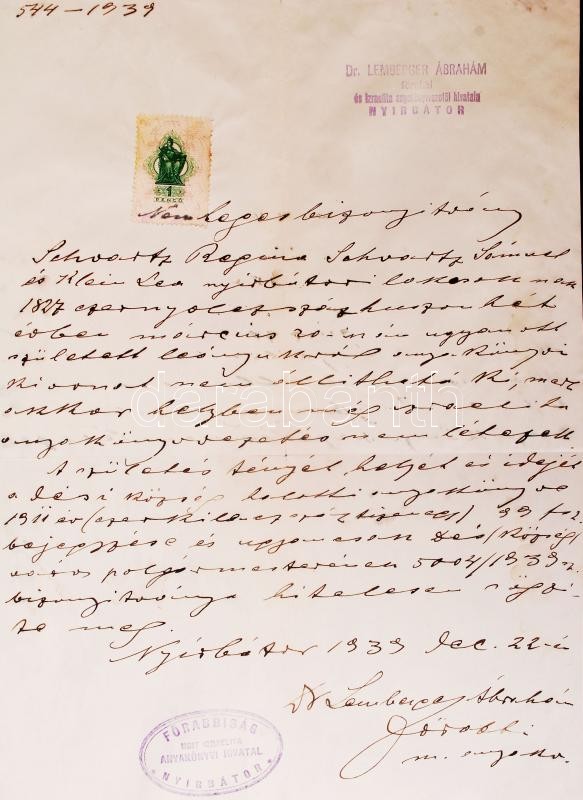 544-1939
Dr. LEMBERGER ÁBRAHÁM
főrabbi
és izraelita anyakönyvvezetői hivatala
NYIRBÁTOR
1
PENGŐ
Nemleges bizonyitvány
Schvartz Regina Schvartz Sámuel
és Klein Lea nyirbátori lakosoknak
1827 ezernyolcszázhuszonhét
évben március 20-n ugyanott
született leányukról anyakönyvi
kivonat nem állitható ki, mert
akkor helyben még izraelita
anyakönyvvezetés nem létezett.
A születés tényét helyét és idejét
a dési község halotti anyakönyve
1911 év (ezerkilencszáztizenegy) 99 f.sz
bejegyzése és ugyancsak Dés község
város polgármesterének 5004/1939 sz.
bizonyitványa hitelesen rögzi-
te meg.
Nyirbátor 1939 dec. 22-n
Dr Lemberger Ábrahám
főrabbi
m. anyakv.
FŐRABBISÁG
IZRAELITA
ANYAKÖNYVI HIVATAL
NYIRBÁTOR
darabanth